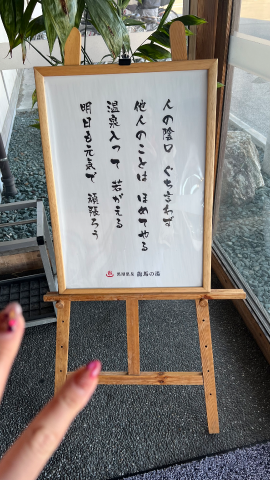 人の陰口 ぐちさわず
他人のことは ほめてやる
温泉入って 若がえる
明日も元気で 頑張ろう
龍馬の湯